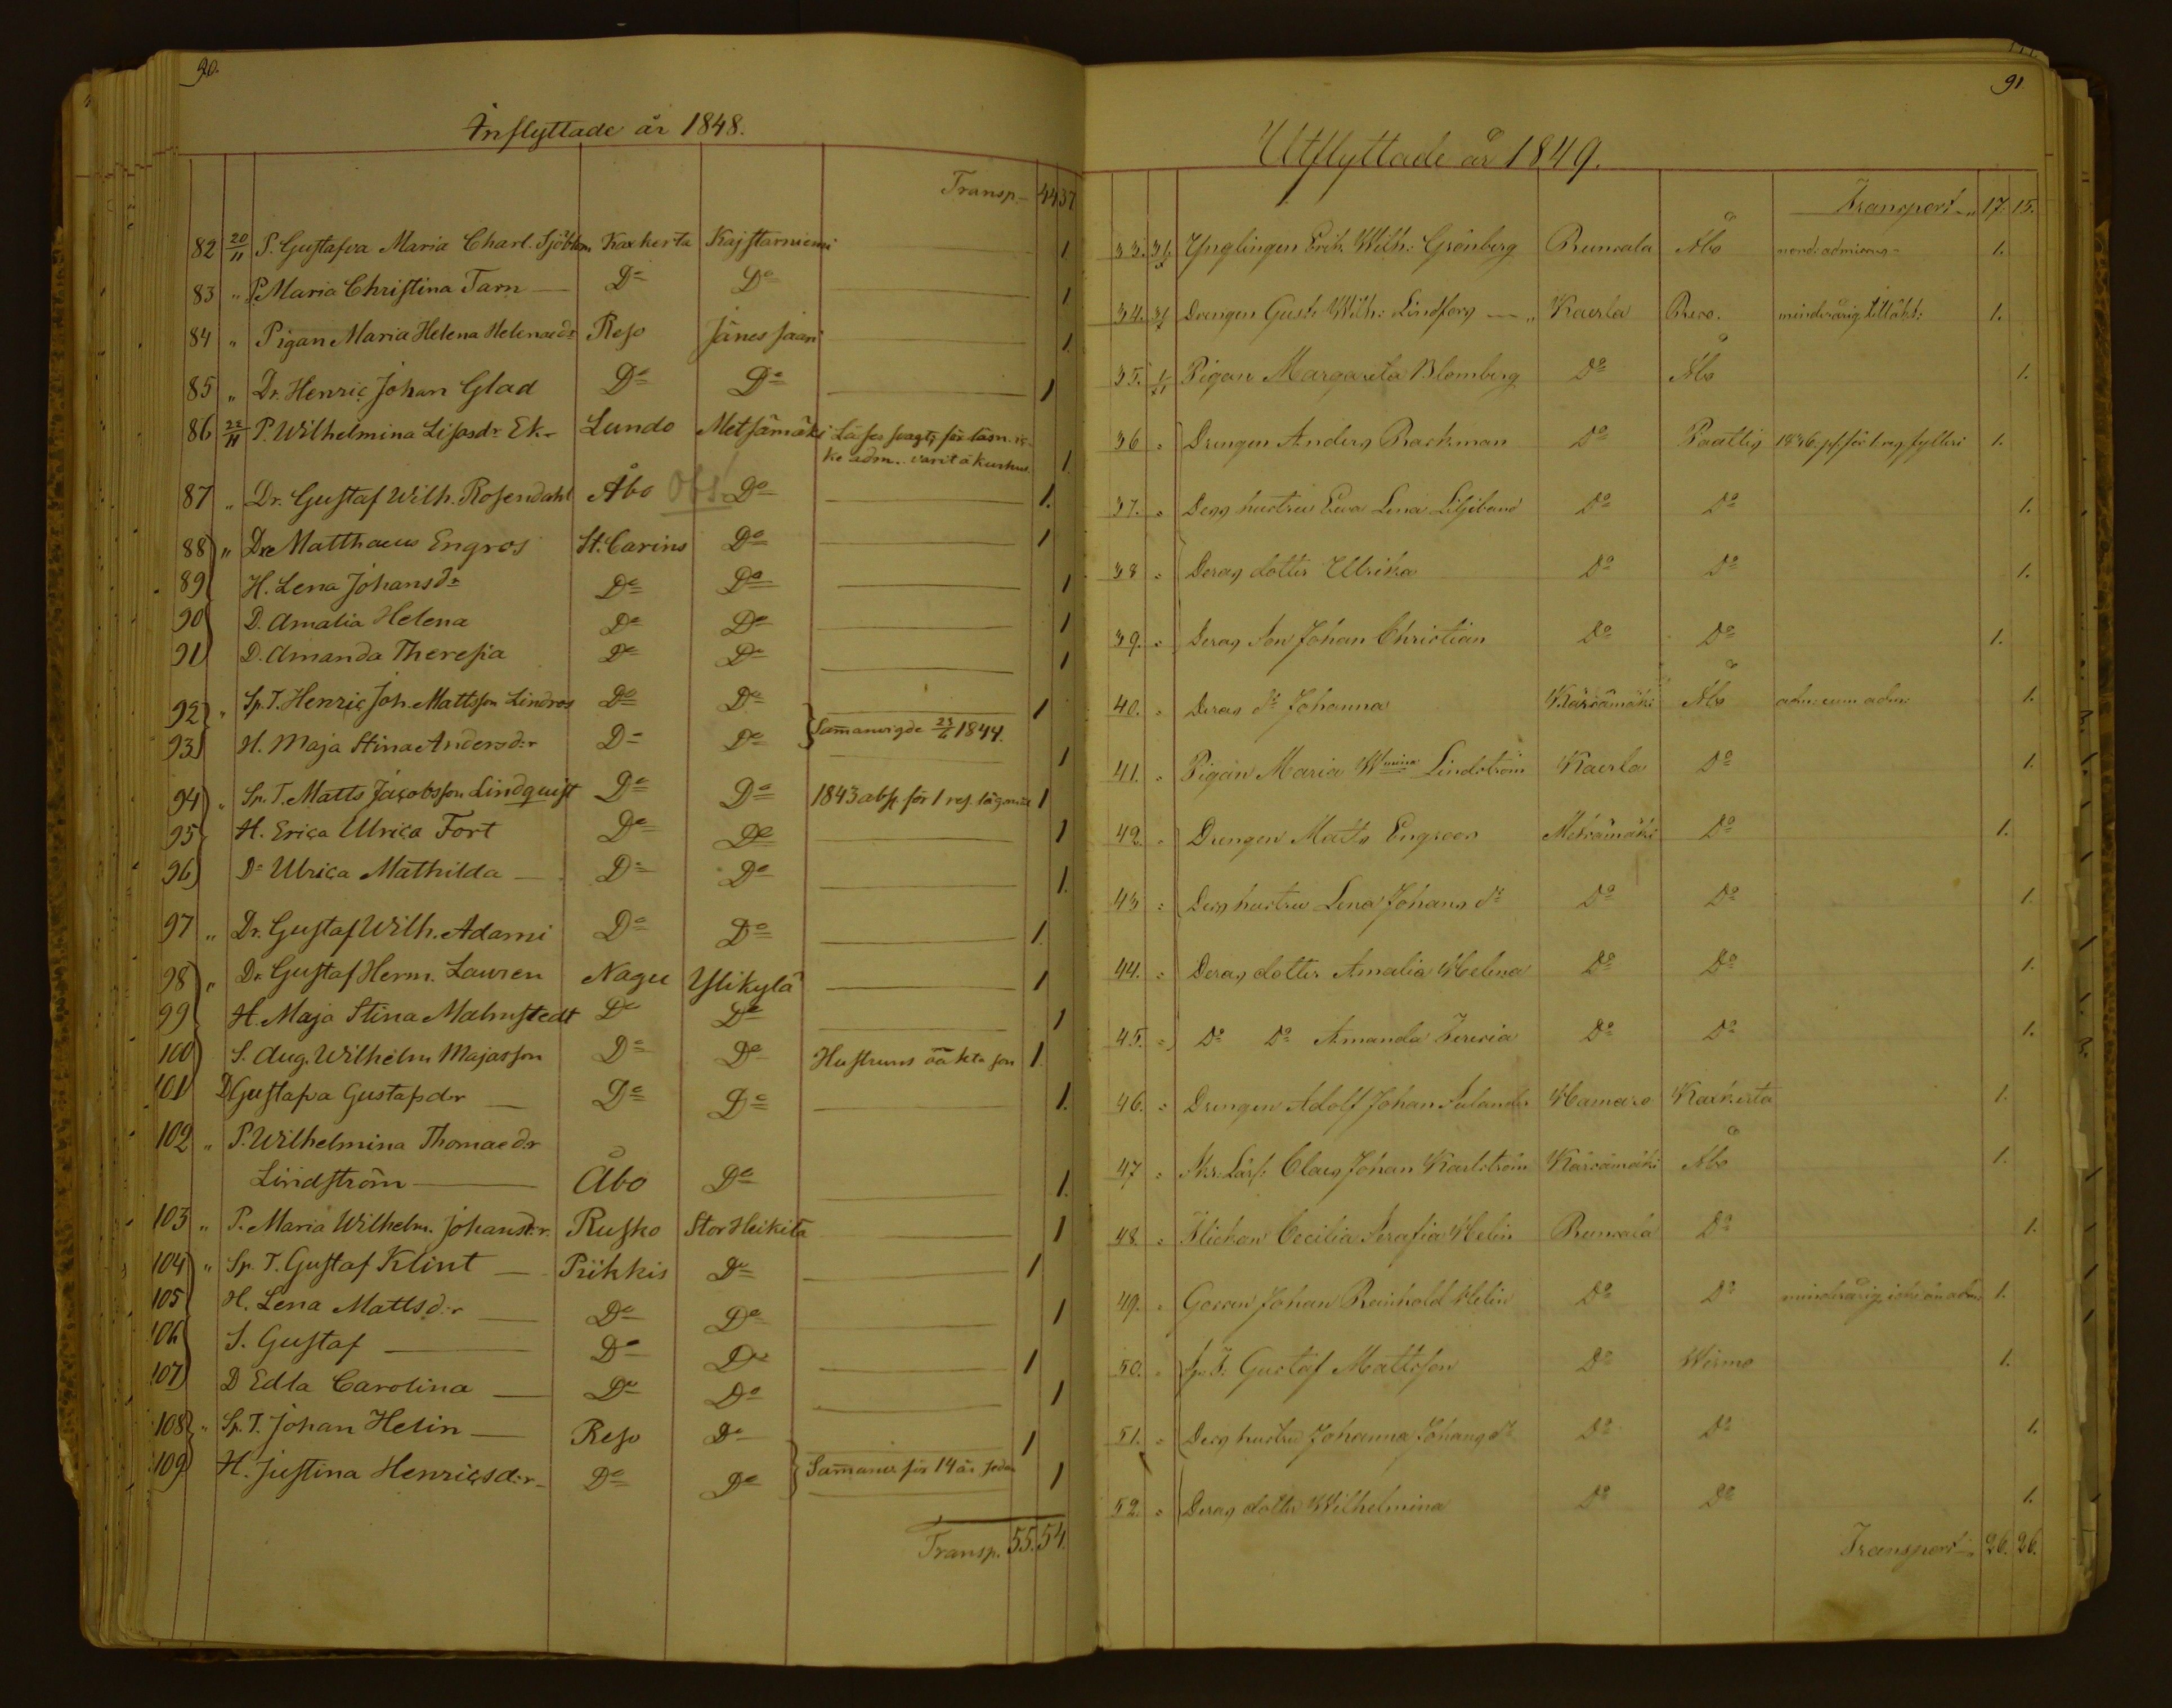 90.
Inflyttade år 1848.
Transp. 44 37
82 20/11 P. Gustafva Maria Charl. Sjöblom Kaxkerta Kajstarniemi 1
83 " P. Maria Christina Tarn — Do Do 1
84 " Pigan Maria Helena Helenaedr Reso Jänessaari 1
85 " Dr. Henric Johan Glad Do Do 1
86 22/11 P. Wilhelmina Lisasdr Ek Lundo Metsämäki
ke adm. varit å kurhus. 1
87 " Dr. Gustaf Wilh. Rosendahl Åbo Obs! Do 1.
88 " Dr. Matthaeus Engros St. Carins Do 1
89 H. Lena Johansdr Do Do 1
90 D. Amalia Helena Do Do 1
91 D. Amanda Theresia Do Do 1
92 " Sp. T. Henric Joh. Mattsson Lindros Do Do 1
93 H. Maja Stina Andersd:r Do Do Sam̄anvigde 23/6 1844. 1
94 " Sp. T. Matts Jacobsson Lindquist Do Do 1843 absp. för 1 res. lägersm. 1
95 H. Erica Ulrica Fort Do Do 1
96 Dr Ulrica Mathilda — Do Do 1.
97 " Dr. Gustaf Wilh. Adami Do Do 1.
98 " Dr. Gustaf Herm. Lauren Nagu Ylikylä 1
99 H. Maja Stina Malmstedt Do Do 1
100 S. Aug. Wilhelm Majasson Do Do Hustruns oäkta son 1.
101 D Gustafva Gustafsd:r — Do Do 1.
102 " P. Wilhelmina Thomaed:r
Lindström — Åbo Do 1.
103 " P. Maria Wilhelm. Johansd:r. Rusko Stor Heikilä 1
104 " Sp. T. Gustaf Klint — Piikkis Do 1
105 H. Lena Mattsd:r — Do Do 1
106 S. Gustaf — Do Do 1
107 D Edla Carolina — Do Do 1
108 " Sp. T. Johan Helin — Reso Do 1
109 H. Justina Henricsd:r Do Do Sam̄anv. för 14 år sedan 1
Transp. 55. 54.
91
Utflyttade år 1849.
Transport 17. 15.
33. Ynglingen Erik Wilh: Grönberg Runsala Åbo 1.
34. Drengen Gust: Wilh: Lindfors Kaerla Reso. minderårig 1.
35. Pigan Margareta Blomberg Do Åbo 1.
36 " Drengen Anders Backman Do Paattis 1846 1.
37. " Dess hustru Ewa Lena Liljeband Do Do 1.
38 " Deras dotter Ulrika Do Do 1.
39. " Deras Son Johan Christian Do Do 1.
40. " Deras dr Johanna Kärsämäki Åbo adm: cum adm: 1.
41. " Pigan Maria Wmina Lindström Kaerla Do 1.
42. " Drengen Matts Engroos Metsämäki Do 1.
43 " Dess hustru Lena Johans dr Do Do 1.
44. " Deras dotter Amalia Helena Do Do 1.
45. " Do Do Amanda Teresia Do Do 1.
46. " Drengen Adolf Johan Salander Hamaro Kaxkerta 1.
47 " Claes Johan Karlström Kärsämäki Åbo 1.
48. " Flickan Cecilia Serafia Helin Runsala Do 1.
49. " Gossen Johan Reinhold Helin Do Do minderårig, icke än adm: 1.
50. " Sp. T: Gustaf Mattsson Do Wirmo 1.
51. " Dess hustru Johanna Johans dr Do Do 1.
52. " Deras dotter Wilhelmina Do Do 1.
Transport 26. 26.